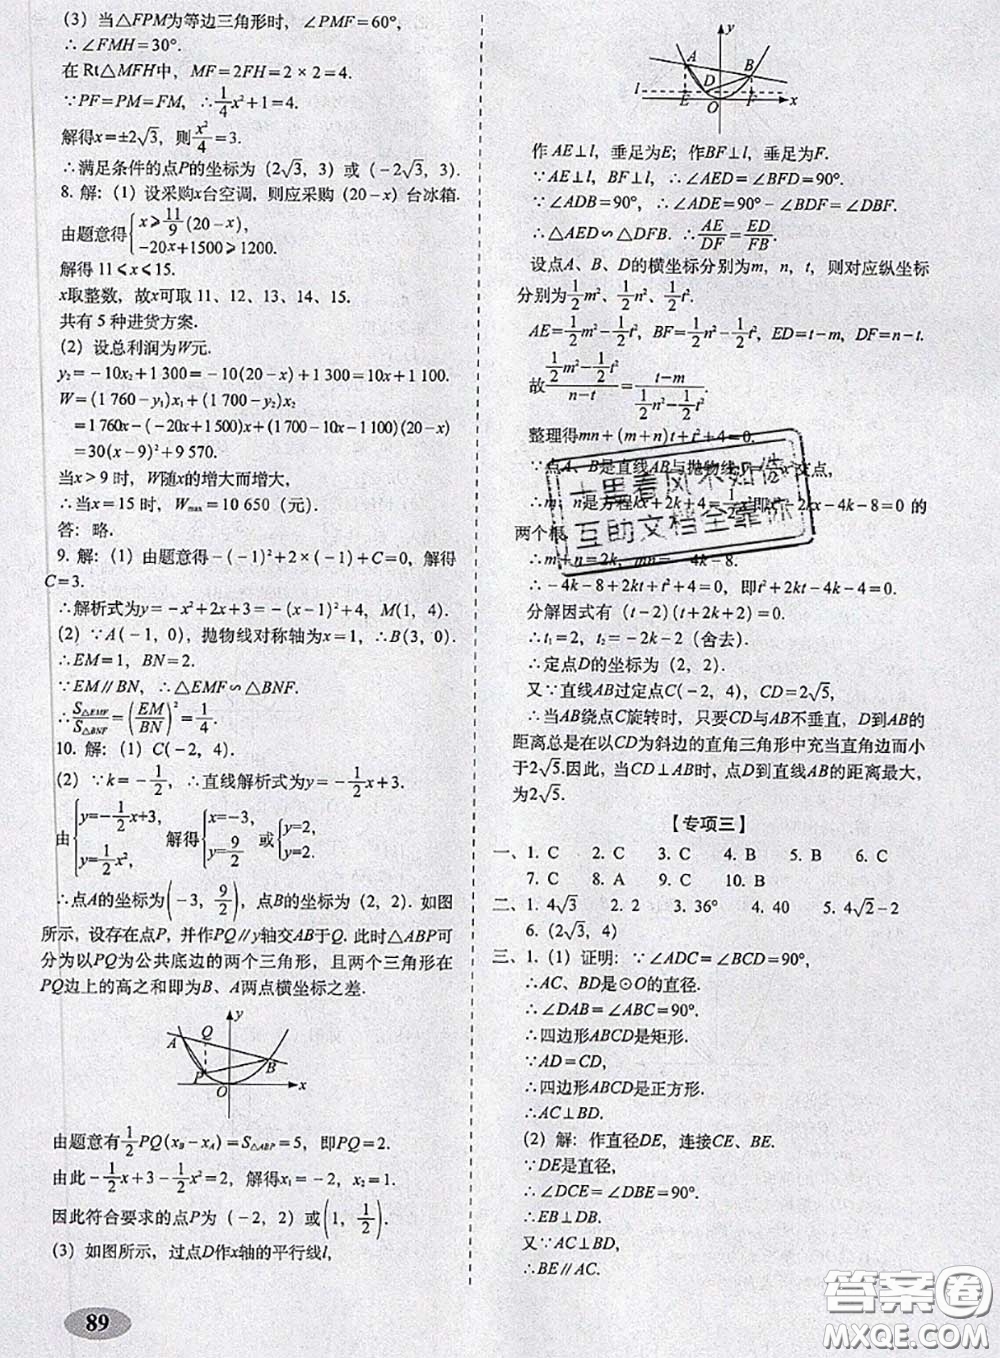 (3) 当△FPM为等边三角形时，∠PMF=60°，
∴∠FMH=30°.
在 Rt△MFH中，MF=2FH=2×2=4.
∵PF=PM=FM，∴1/4x²+1=4.
解得x=±2√3，则x²/4=3.
∴满足条件的点P的坐标为（2√3，3）或（-2√3，3）.
8. 解：(1) 设采购x台空调，则应采购（20-x）台冰箱.
由题意得{x⩾11/9(20-x)，
-20x+1500⩾1200.
解得 11⩽x⩽15.
x取整数，故x可取 11、12、13、14、15.
共有 5 种进货方案.
(2) 设总利润为W元.
y₂=-10x₂+1 300=-10(20-x)+1 300=10x+1 100.
W=(1 760-y₁)x₁+(1 700-y₂)x₂
=1 760x-(-20x+1 500)x+(1 700-10x-1 100)(20-x)
=30(x-9)²+9 570.
当x>9 时，W随x的增大而增大，
∴当x=15 时，Wmax=10 650（元）.
答：略.
9. 解：(1) 由题意得-(-1)²+2×(-1)+C=0，解得
C=3.
∴解析式为y=-x²+2x+3=-(x-1)²+4，M(1，4).
(2) ∵A(-1，0)，抛物线对称轴为x=1，∴B(3，0).
∴EM=1，BN=2.
∵EM∥BN，∴△EMF∽△BNF.
∴S△EMF/S△BNF=(EM/BN)²=1/4.
10. 解：(1) C(-2，4).
(2) ∵k=-1/2，∴直线解析式为y=-1/2x+3.
由{y=-1/2x+3，y=1/2x²，解得{x=-3，y=9/2 或{y=2，y=2.
∴点A的坐标为(-3，9/2)，点B的坐标为（2，2）. 如图
所示，设存在点P，并作PQ∥y轴交AB于Q. 此时△ABP可
分为以PQ为公共底边的两个三角形，且两个三角形在
PQ边上的高之和即为B、A两点横坐标之差.
y
A
Q
B
P
O
x
由题意有1/2PQ(xB-xA)=S△ABP=5，即PQ=2.
由此-1/2x+3-1/2x²=2，解得x₁=-2，x₂=1.
因此符合要求的点P为（-2，2）或(1，1/2).
(3) 如图所示，过点D作x轴的平行线l，
89
y
A
B
D
l
E
O
F
x
作 AE⊥l，垂足为E；作BF⊥l，垂足为F.
∵AE⊥l，BF⊥l，∴∠AED=∠BFD=90°.
∵∠ADB=90°，∴∠ADE=90°-∠BDF=∠DBF.
∴△AED∽△DFB. ∴AE/DF=ED/FB.
设点A、B、D的横坐标分别为m，n，t，则对应纵坐标
分别为1/2m²、1/2n²、1/2t².
AE=1/2m²-1/2t²，BF=1/2n²-1/2t²，ED=t-m，DF=n-t.
故(1/2m²-1/2t²)/(n-t)=(t-m)/(1/2n²-1/2t²).
整理得mn+(m+n)t+t²=-4.
∵点A、B是直线AB与抛物线 交点，
∴m、n是方程kx+2k+4=1/2x²，即 -2kx-4k-8=0 的
两个根.
∴m+n=2k，mn=-4k-8.
∴-4k-8+2kt+t²=-4，即t²+2kt-4k-4=0.
分解因式有 (t-2)(t+2k+2)=0.
∴t₁=2，t₂=-2k-2（舍去）.
∴定点D的坐标为（2，2）.
又∵直线AB过定点C(-2，4)，CD=2√5，
∴当AB绕点C旋转时，只要CD与AB不垂直，D到AB的
距离总是在以CD为斜边的直角三角形中充当直角边而小
于2√5.因此，当CD⊥AB时，点D到直线AB的距离最大，
为2√5.
【专项三】
一、1. C 2. C 3. C 4. B 5. B 6. C
7. C 8. A 9. C 10. B
二、1. 4√3 2. 2 3. 36° 4. 40 5. 4√2-2
6. (2√3，4)
三、1. (1) 证明：∵∠ADC=∠BCD=90°，
∴AC、BD是⊙O的直径.
∴∠DAB=∠ABC=90°.
∴四边形ABCD是矩形.
∵AD=CD，
∴四边形ABCD是正方形.
∴AC⊥BD.
(2) 解：作直径DE，连接CE、BE.
∵DE是直径，
∴∠DCE=∠DBE=90°.
∴EB⊥DB.
又∵AC⊥BD，
∴BE∥AC.
十里春风不如你
互助文档全靠你
答案圈
MXQE.COM